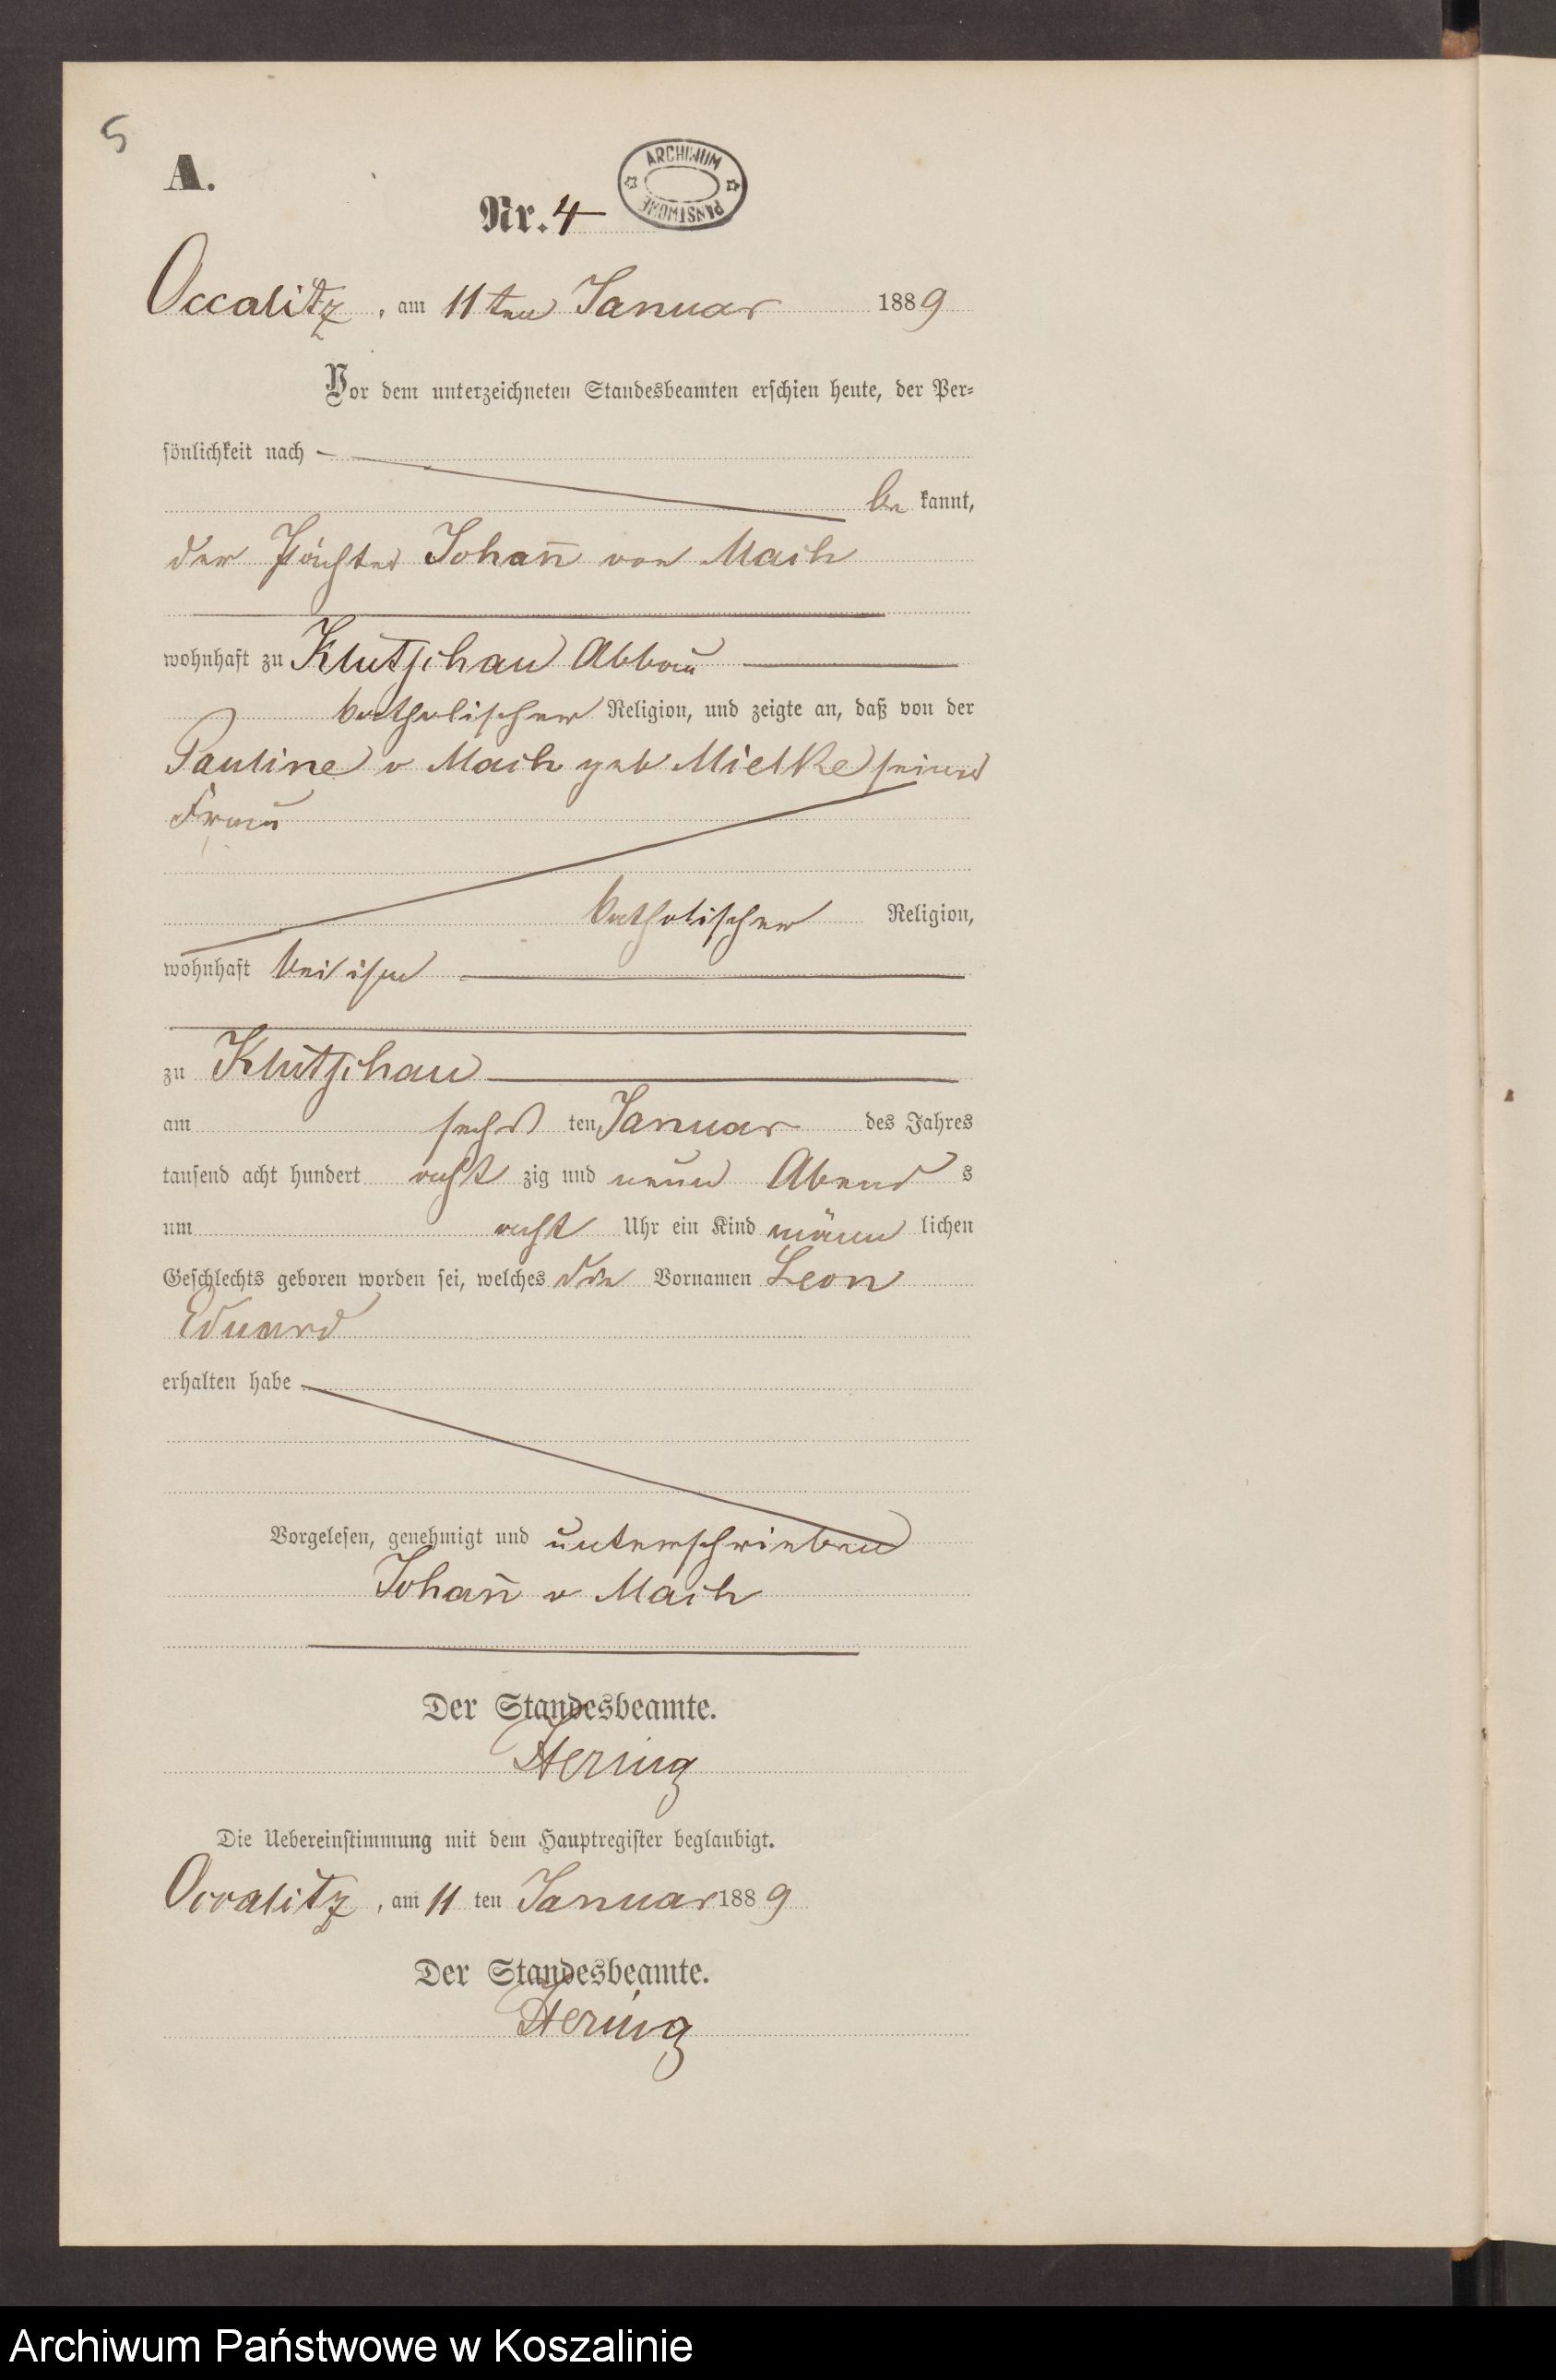 5
A.
ARCHIWUM PAŃSTWOWE
Nr. 4
Occalitz, am 11ten Januar 1889
Vor dem unterzeichneten Standesbeamten erschien heute, der Per-
sönlichkeit nach
be kannt,
der Pächter Johan̅ von Mach
wohnhaft zu Klutschau Abbau
katholischer Religion, und zeigte an, daß von der
Pauline v Mach geb Mielke seiner
Frau
katholischer Religion,
wohnhaft bei ihm
zu Klutschau
am sechs ten Januar des Jahres
tausend acht hundert acht zig und neun Abend s
um acht Uhr ein Kind männ lichen
Geschlechts geboren worden sei, welches die Vornamen Leon
Eduard
erhalten habe
Vorgelesen, genehmigt und unterschrieben
Johan̅ v Mach
Der Standesbeamte.
Hering
Die Uebereinstimmung mit dem Hauptregister beglaubigt.
Occalitz, am 11 ten Januar 1889
Der Standesbeamte.
Hering
Archiwum Państwowe w Koszalinie